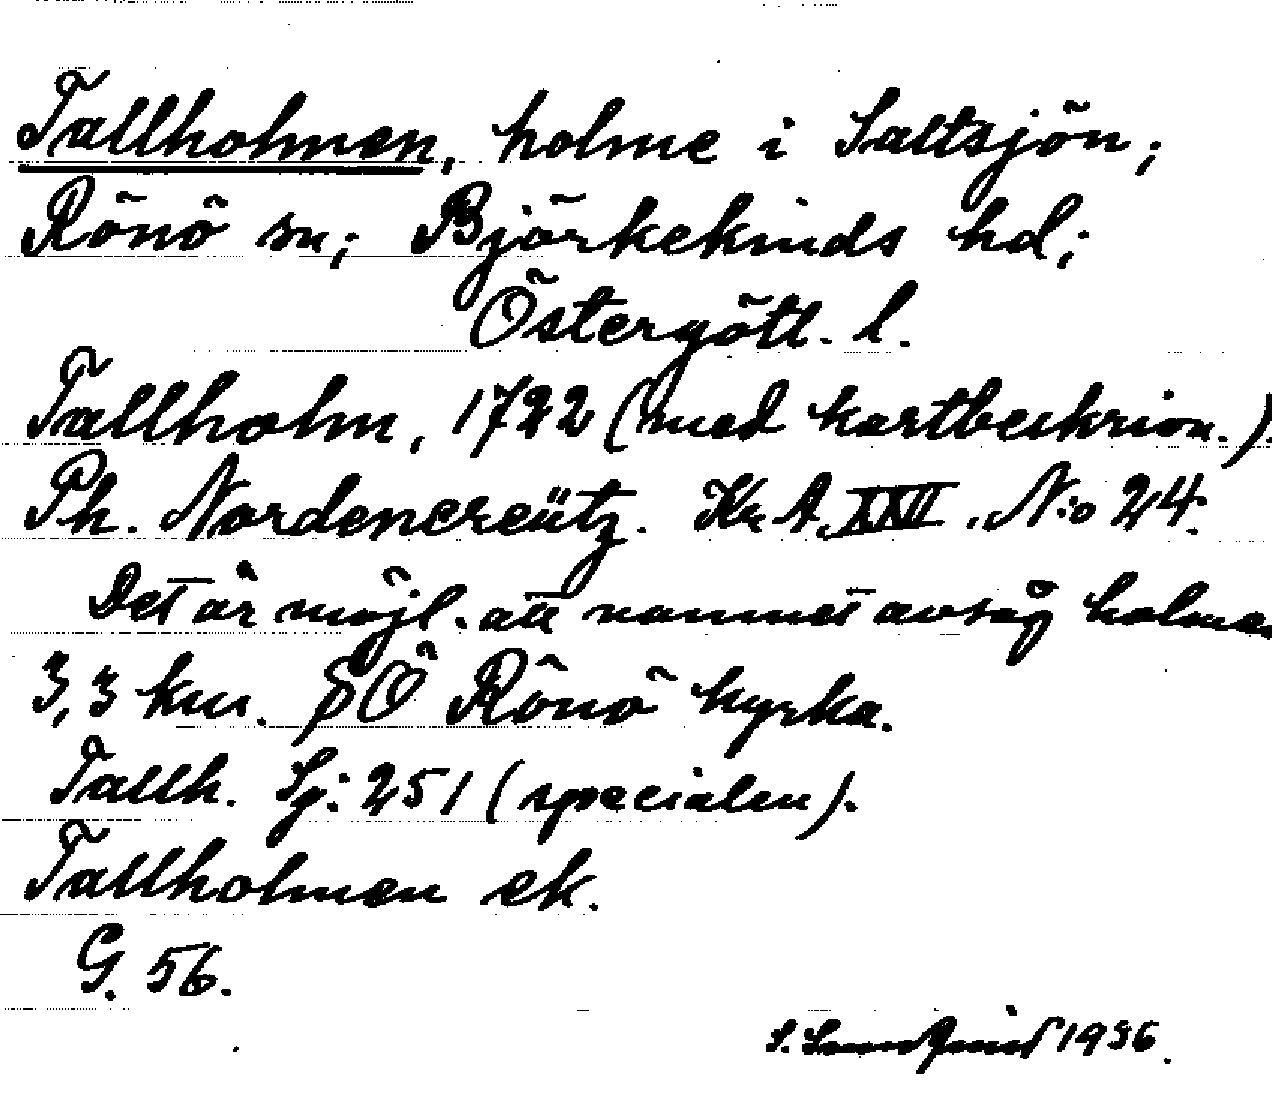 Tallholmen, holme i Saltsjön;
Rönö sn; Björkekinds hd;
Östergötl. l.
Tallholm, 1722 (med kartbeskrivn.).
Ph. Nordencreütz. Kr. A. XXII. N:o 24.
Det är möjl. att namnet avsåg holmen
3,3 km. SÖ Rönö kyrka.
Tallh. Sj: 251 (specialen).
Tallholmen ek.
G. 56.
S. 1936.